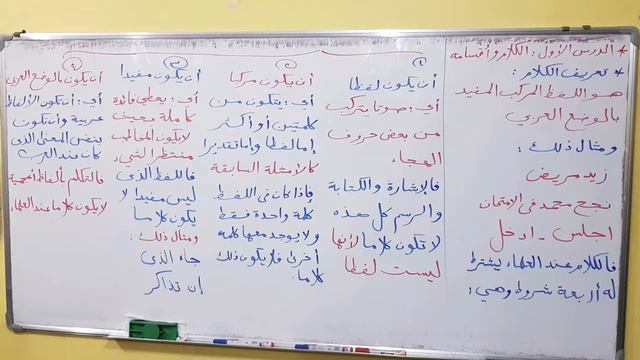 * الدرس الأول: الكلام وأقسامه
* تعريف الكلام:
هو اللفظ المركب المفيد
بالوضع العربي
ومثال ذلك:
زيد مريض
نجح محمد في الامتحان
اجلس - ادخل
فالكلام عند العلماء يشترط
له أربعة شروط وهي:
١
أن يكون لفظا
أي: صوتا يتركب
من بعض حروف
الهجاء
فالإشارة والكتابة
والرسم كل هذه
لا تكون كلاما لأنها
ليست لفظا
٢
أن يكون مركبا
أي: يتكون من
كلمتين أو أكثر
إما لفظا وإما تقديرا
كالأمثلة السابقة
فإذا كان في اللفظ
كلمة واحدة فقط
ولا يوجد معها كلمة
أخرى فلا يكون ذلك
كلاما
٣
أن يكون مفيدا
أي: يعطي فائدة
كاملة بحيث
لا يكون المخاطب
منتظرا لشيء
فاللفظ الذي
ليس مفيدا لا
يكون كلاما
ومثال ذلك:
جاء الذي
إن تذاكر
٤
أن يكون بالوضع العربي
أي: أن تكون الألفاظ
عربية وأن تكون
بنفس المعنى الذي
كان عند العرب
فالتكلم بألفاظ أعجمية
لا يكون كلاما عند العلماء